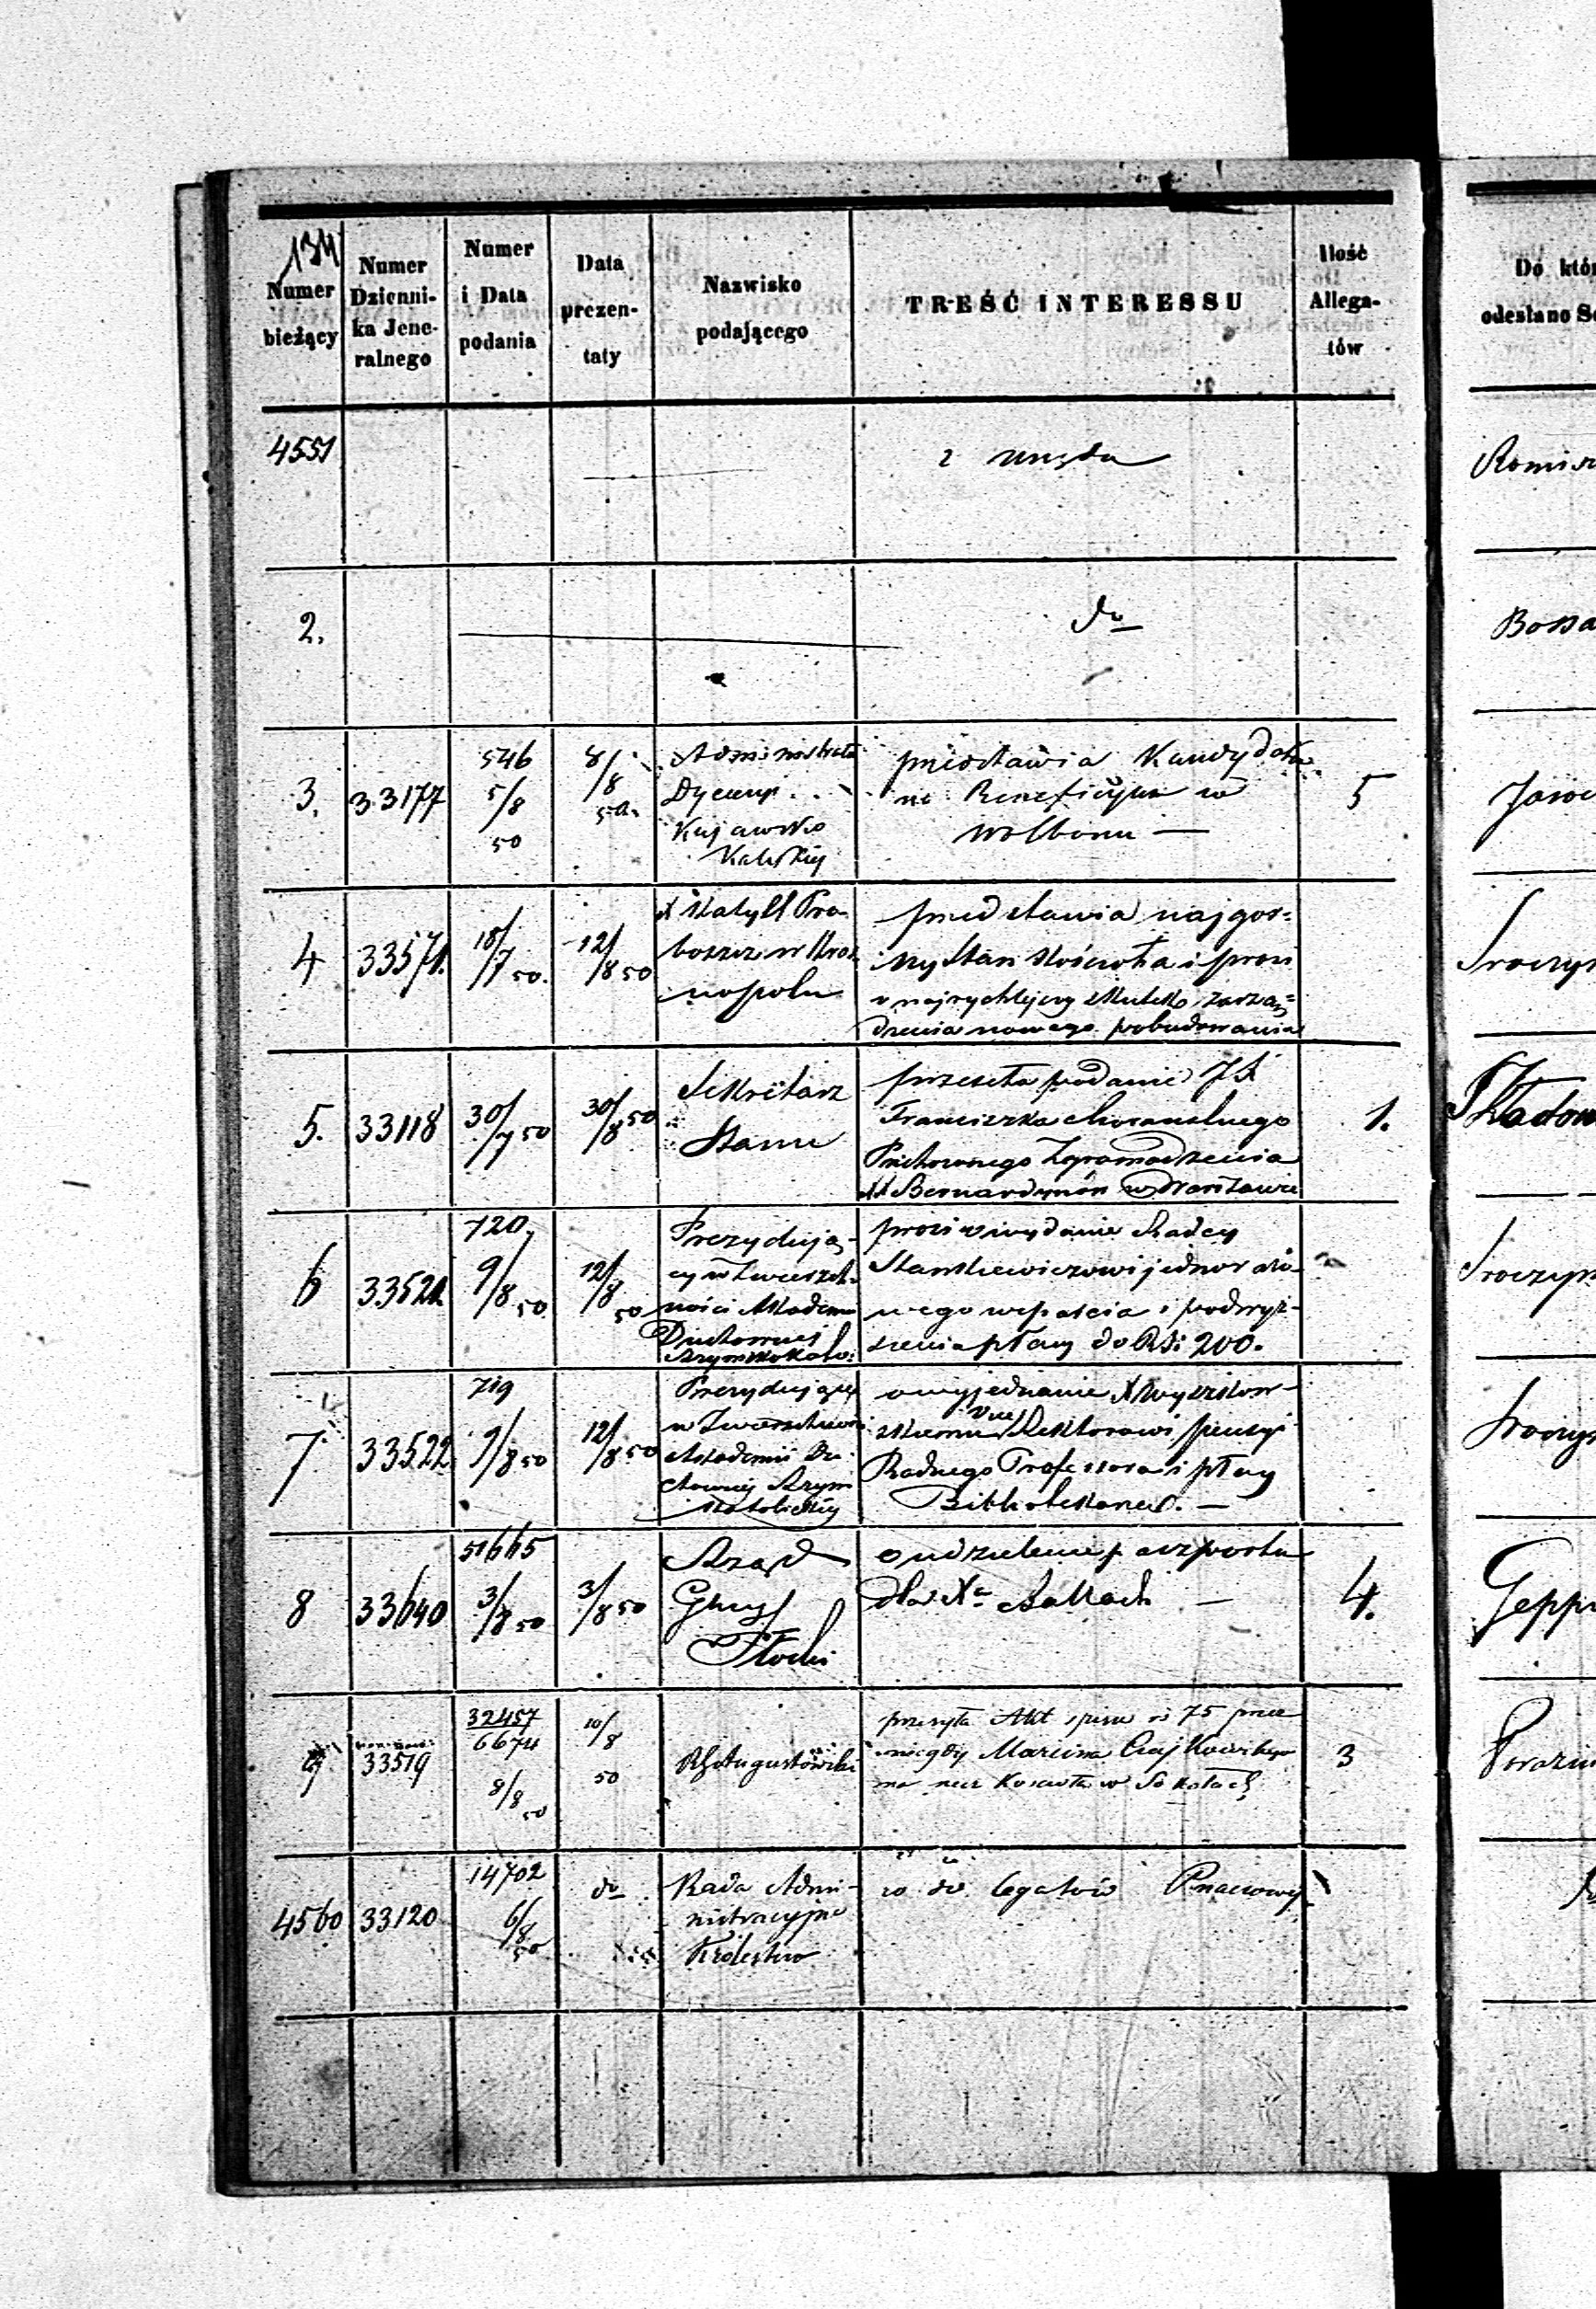 134
Numer
bieżący
Numer
Dzienni-
ka Jene-
ralnego
Numer
i Data
podania
Data
prezen-
taty
Nazwisko
podającego
TREŚĆ INTERESSU
Ilość
Allega-
tów
Do któr
odesłano Se
4551
z urzędu
2.
do
3.
33177
546
5/8
50
8/8
50.
Administrator
Dyecezyi
Kujawsko
Kaliskiej
przedstawia Kandydata
na Beneficyum w
Wolborzu —
5
4
33571.
18/7 50.
12/8 50
X Pro-
boszcz w Kras
nopolu
przedstawia najgor-
szy stan Kościoła i prosi
o najrychlejszy skutek zarzą-
dzenia nowego pobudowania
5.
33118
30/7 50
30/8 50
Sekretarz
Stanu
przesyła podanie
Franciszka
Zgromadzenia
XX Bernardynów w Warszawie
1.
6
33521.
720.
9/8 50
12/8
50
Prezydują-
cy w Zwierzch-
ności Akademii
Duchownej
Rzymskokato:
prosi o wydanie Radcy
Stankiewiczowi jednorazo-
wego wsparcia i podwyż-
szenia płacy do RSr 200.
7
33522.
719
9/8 50
12/8 50
Prezydujący
w Zwierzchności
Akademii Du-
chownej Rzym
Katolickiej
o wyjednanie X Wyszkow-
skiemu Vice Rektorowi pensyi
Radnego Professora i płacy
Bibliotekarza. —
8
33640
51665
3/8 50
3/8 50
Rząd
Gubz
Płocki
o udzielenie paszportu
dla Xa —
4.
Geppe
9
33519
32457
6674
8/8
50
10/8
50
RG Augustowski
przesyła Akt spisu rs 75 przez
niegdy Marcina Czajkowskiego
na rzecz Kościoła w Sokołach
3
4560
33120
14702
6/8
50
do
Rada Admi-
nistracyjna
Królestwa
co do legatów